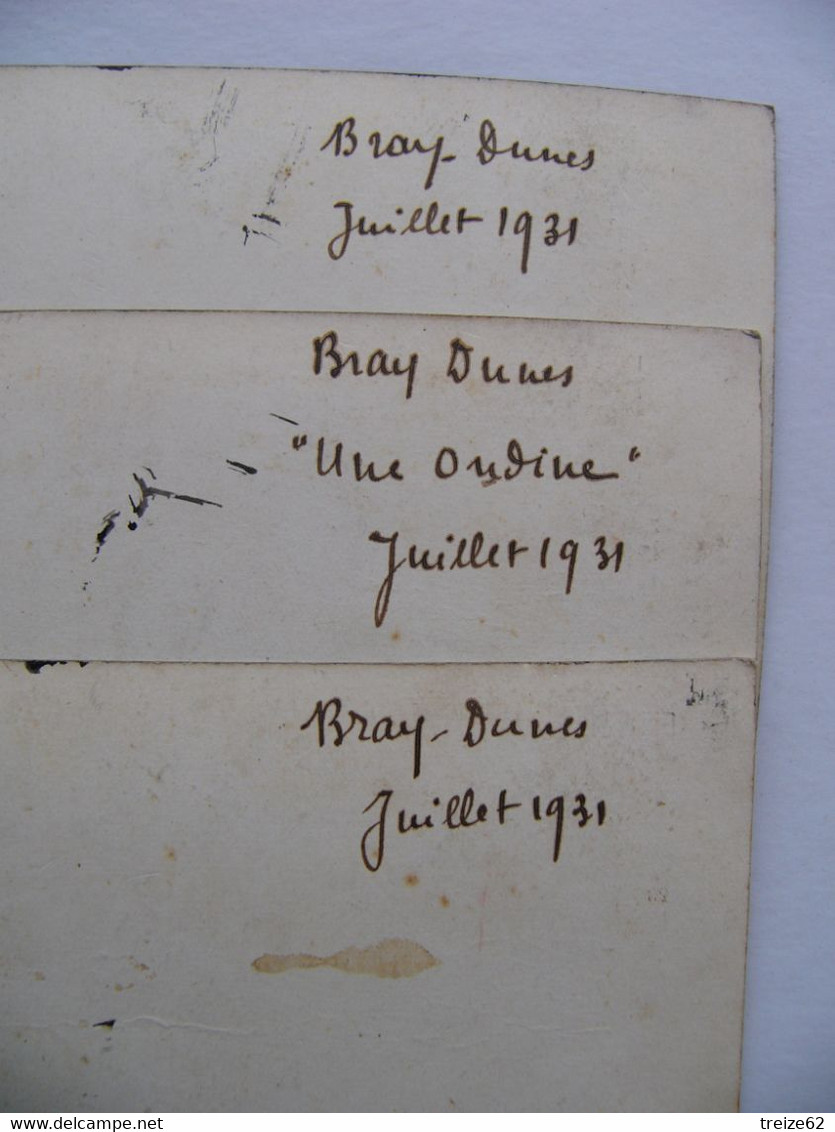 Bray-Dunes
Juillet 1931
Bray Dunes
"Une Ondine"
Juillet 1931
Bray-Dunes
Juillet 1931
delcampe.net
treize62